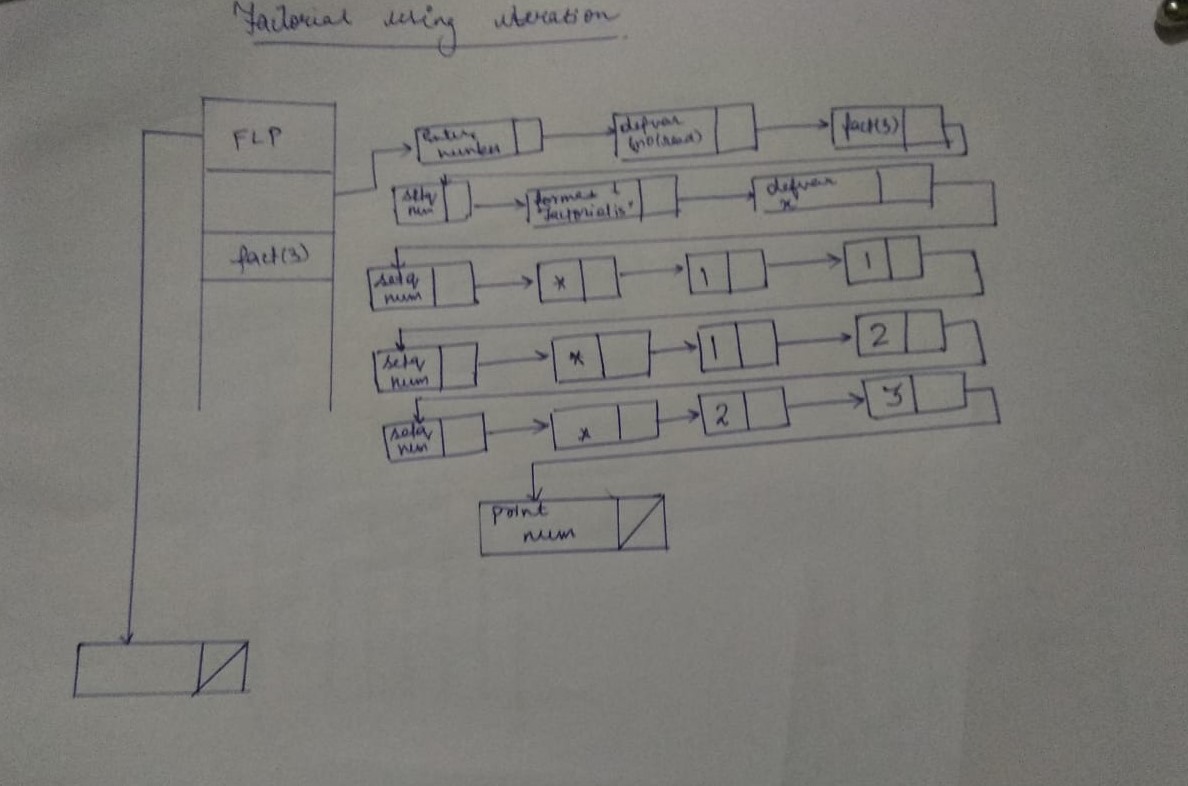 Factorial using iteration
FLP
Enter
number
defvar
(no(read)
fact(3)
setq
num
format t
"factorial is"
defvar
x
fact(3)
setq
num
*
1
1
setq
num
*
1
2
setq
num
*
2
3
print
num